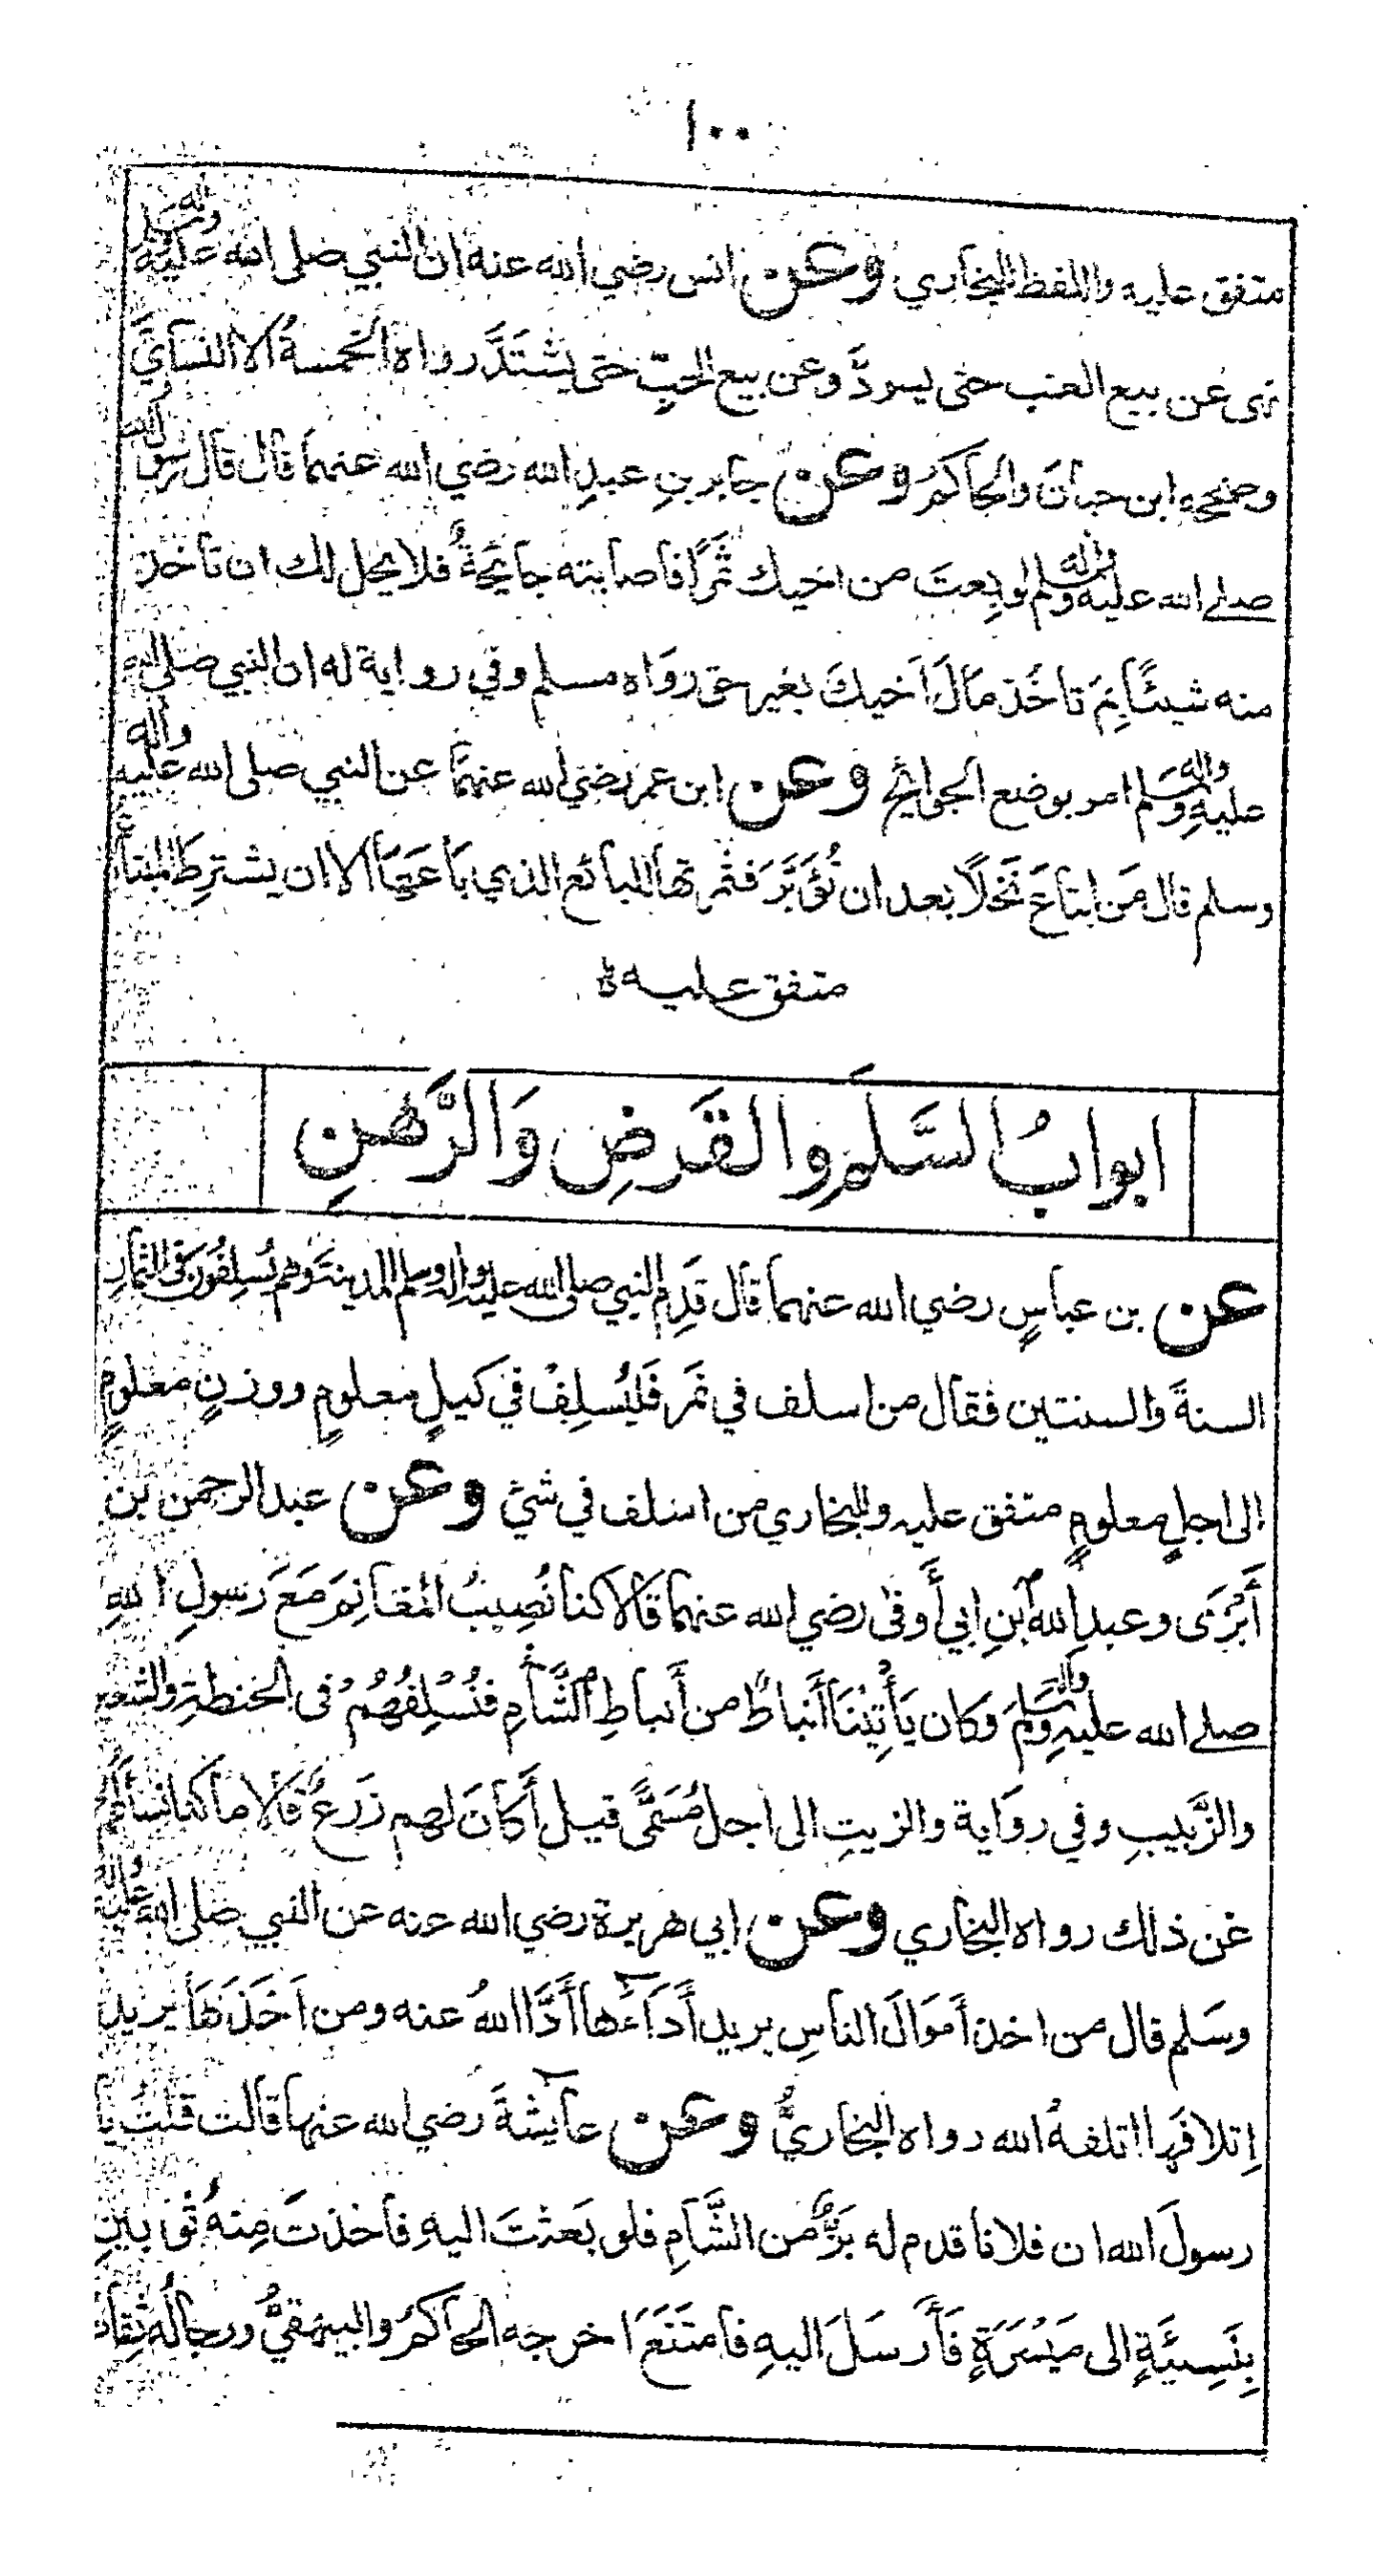 ١٠٠
متفق عليه واللفظ للبخاري وعن انس رضي الله عنه ان النبي صلى الله عليه واله وسلم
نهى عن بيع العنب حتى يسودَّ وعن بيع الحبِّ حتى يشتَدَّ رواه الخمسةُ الا النسآيَّ
وصححه ابن حبانَ والحاكمُ وعن جابر بنِ عبدِ الله رضي الله عنهما قال قال رسول الله
صلے الله عليه واله وسلم لو بِعتَ من اخيك ثمَرًا فاصابته جايحةٌ فلا يحل لك ان تاخذ
منه شيئًا بِمَ تاخُذ مَالَ اَخيكَ بغير حق روَاه مسلم وفي رواية له ان النبي صلى الله
عليهِ واله وسلم امر بوضع الجوائح وعن ابن عمر رضي الله عنهمَا عن النبي صلى الله عليه واله
وسلم قال مَن ابتاعَ نَخلًا بعد ان تُؤَبَّرَ فثمرتها للبائع الذي بَاعَهَا الا ان يشترِطَ المبتاع
متفق عليه
ابوابُ السَّلَمِ والقَرضِ وَالرَّهنِ
عن بن عباسٍ رضي الله عنهما قال قَدِم النبي صلى الله عليه واله وسلم المدينة وَهُم يُسلِفُونَ في الثمار
السنةَ والسنتين فقال من اسلف في ثمَر فَليُسلِفْ في كيلٍ معلومٍ ووزنٍ معلومٍ
الى اجلٍ معلومٍ متفق عليه وللبخاري من اسلف في شئ وعن عبد الرحمن بن
أَبْزَى وعبدِ الله ابنِ ابي أَوفى رضي الله عنهما قالا كنا نُصِيبُ المغانِمَ مَعَ رسولِ اللهِ
صلے الله عليهِ واله وسلمَ وكان يَأْتِيْنَا أَنباطٌ من أَنباطِ الشَّأمِ فنُسْلِفُهُمْ في الحنطةِ والشعير
والزَّبيبِ وفي روَاية والزيتِ الى اجل مُسَمًّى قيل أَكانَ لهم زَرعٌ قالا ما كنا نسأَلُهم
عَن ذلك رواه البخاري وعن ابي هريرة رضي الله عنه عن النبي صلى الله عليه واله
وسَلم قال من اخذ أَموَالَ الناسِ يريد أَدَآءَها أَدَّا اللهُ عنه ومن اَخَذَهَا يريد
اِتلافَها اتلفهُ الله رواه البخاريُّ وعن عآيشةَ رضي الله عنها قالت قلتُ يا
رسولَ الله ان فلانا قدم له بَزٌّ من الشَّامِ فلو بَعثتَ اليهِ فاَخذتَ مِنهُ ثوبينِ
بِنَسِيْئَةٍ الى مَيْسَرَةٍ فَأَرسَلَ اليهِ فامتَنَعَ اَخرجه الحاكمُ والبيهقيُّ ورجالُه ثِقات